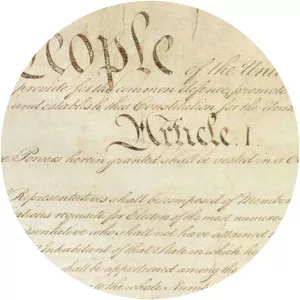 eople
of the Unit
provide for the common defence, promote
and establish this Constitution for the Unite
Article. I.
Powers herein granted shall be vested in a C
Representatives shall be composed of Member
requisite for Electors of the most numero
sentative who shall not have attained
Inhabitant of that State in which he
shall be apportioned among the
to the whole Numb